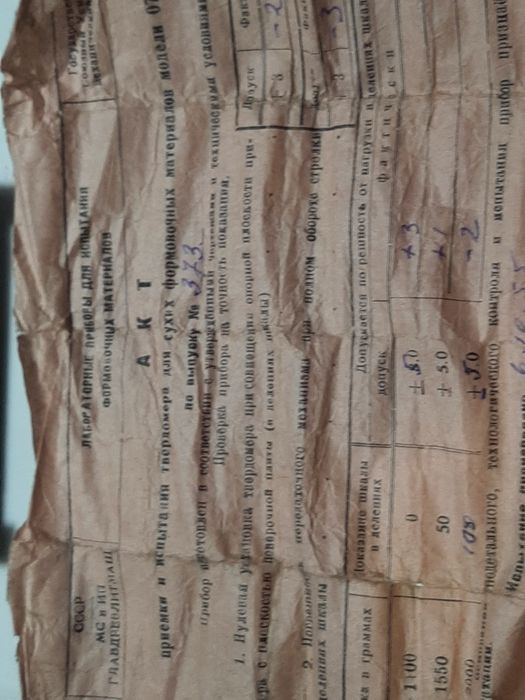 СССР
МС и ИП
ГЛАВДРЕВЛИТМАШ
ЛАБОРАТОРНЫЕ ПРИБОРЫ ДЛЯ ИСПЫТАНИЯ
ФОРМОВОЧНЫХ МАТЕРИАЛОВ
АКТ
приемки и испытания твердомера для сухих формовочных материалов модели 07
по выпуску № 373
Прибор изготовлен в соответствии с утвержденными чертежами и техническими условиями
Проверка прибора на точность показаний.
1. Нулевая установка твердомера при совмещении опорной плоскости при-
ра с плоскостью поверочной плиты (в делениях шкалы)
Допуск
Факт
3
-2
2. передаточного механизма при полном обороте стрелки
делениях шкалы
3
-3
ка в граммах
Показание шкалы
в делениях
Допускается погрешность от нагрузки в делениях шкалы
допуск
фактически
1100
0
± 5.0
+3
1550
50
± 5.0
+1
100
± 5.0
-2
технологического контроля и испытания прибор признан